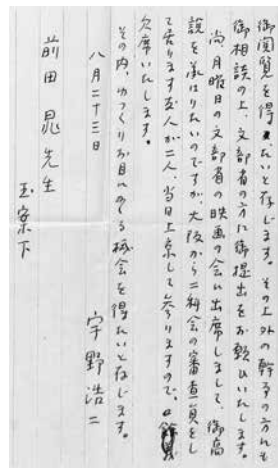 御閲覧を得たいと存じます。その上外の幹事の方にも
御相談の上、文部省の方に御提出をお願ひいたします。
尚月曜日の文部省の映画の会に出席しまして、御高
説を承はりたいのですが、大阪から二科会の審査員をし
て居ります友人が二人、当日上京して参りますので、
欠席いたします。
その内、ゆつくりお目にかゝる機会を得たいと存じます。
八月二十三日
宇野浩二
前田晁先生
玉案下